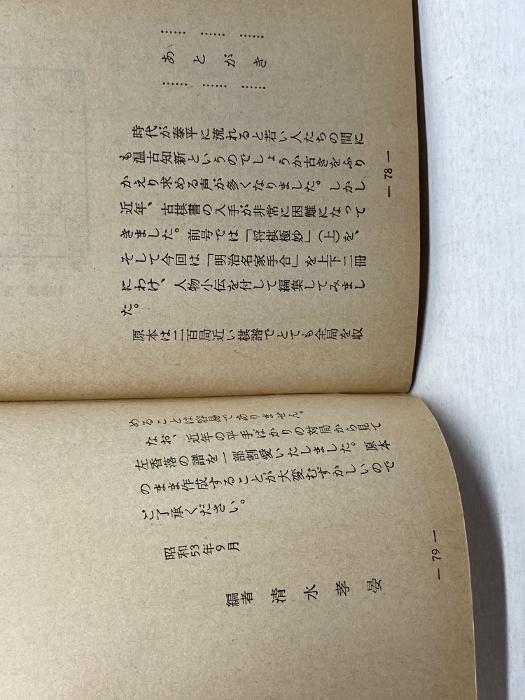 あとがき
時代が泰平に流れると若い人たちの間に
も温古知新というのでしょうか古きをふり
かえり求める声が多くなりました。しかし
近年、古棋書の入手が非常に困難になって
きました。前号では「将棋極妙」(上)を、
そして今回は「明治名家手合」を上下二冊
にわけ、人物小伝を付して編集してみまし
た。
原本は二百局近い棋譜でとても全局を収
— 78 —
めることは容易でありません。
なお、近年の平手ばかりの対局から見て
左香落の譜を一部割愛いたしました。原本
のまま作成することが大変むずかしいので
ご了承ください。
昭和53年9月
編者 清水孝晏
— 79 —